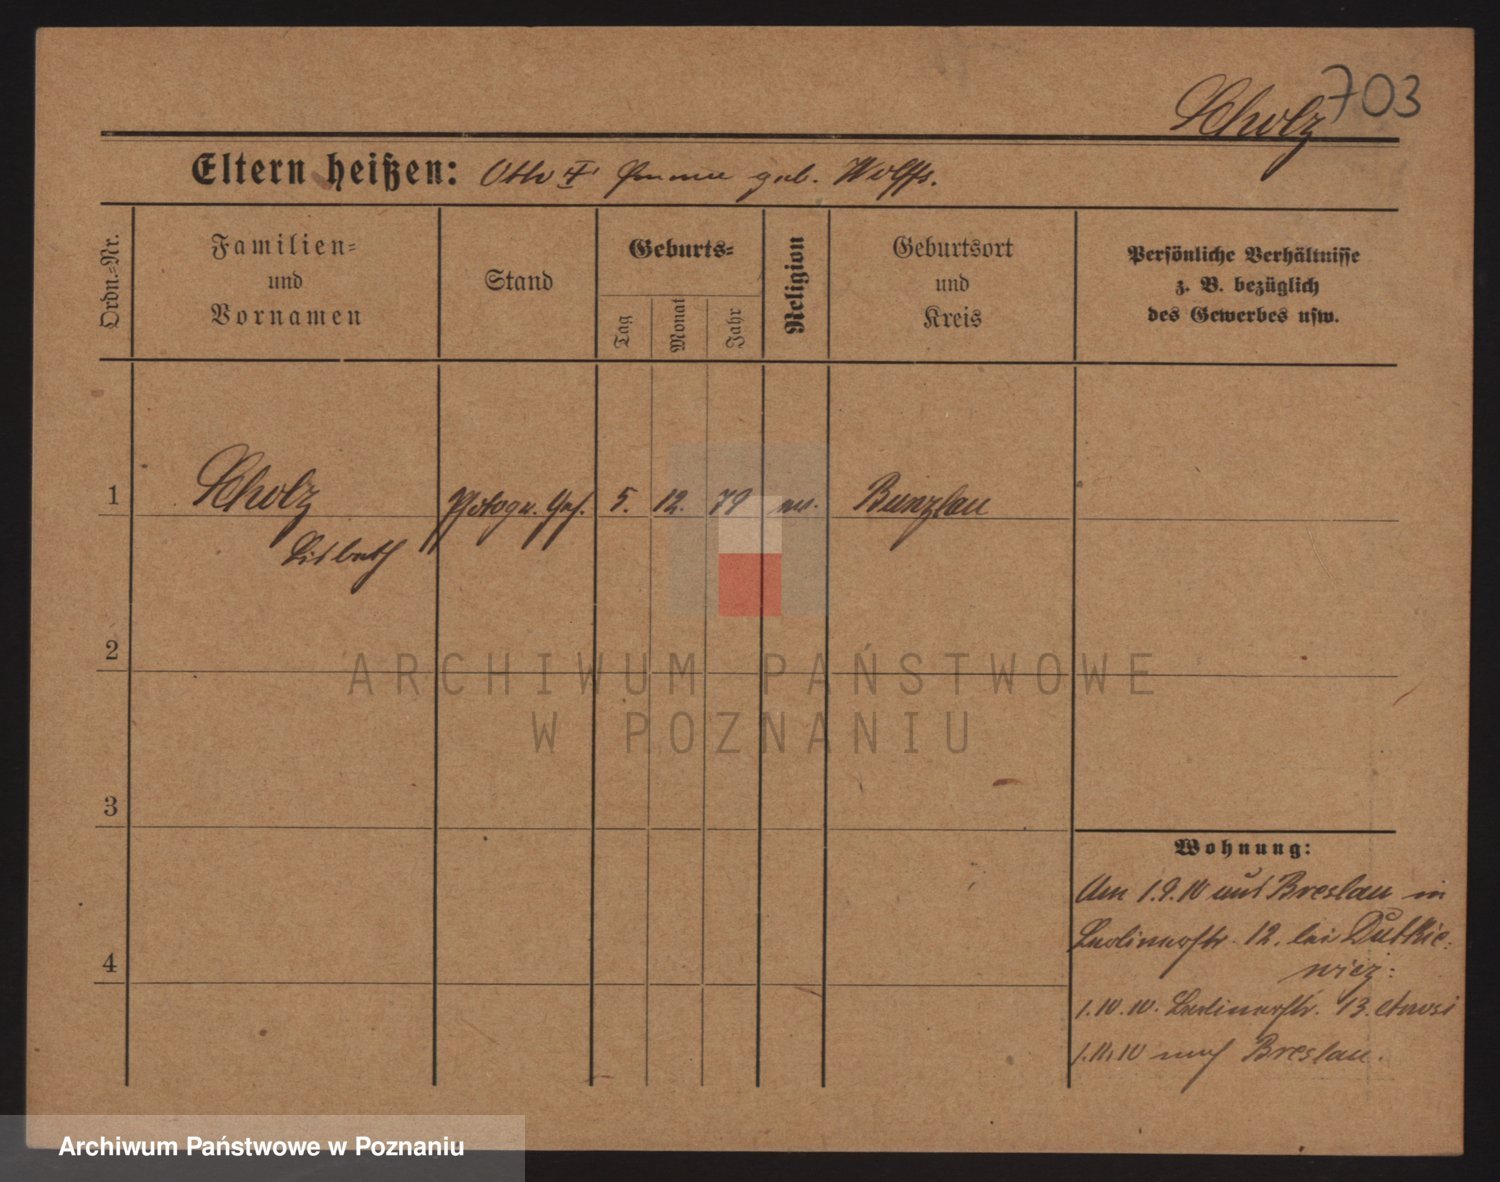 703
Scholz
Eltern heißen: Otto u. Emma geb. Wolff.
Ordn.=Nr.
Familien=
und
Vornamen
Stand
Geburts=
Tag
Monat
Jahr
Religion
Geburtsort
und
Kreis
Persönliche Verhältnisse
z. B. bezüglich
des Gewerbes usw.
1 Scholz Photogr. Geh. 5. 12. 79 ev. Bunzlau
Lisbeth
2
3
4
Wohnung:
Am 1.9.10 aus Breslau in
Berlinerstr. 12. bei Dutkie-
wicz.
1.10.10. Berlinerstr. 13.
1.11.10 nach Breslau.
ARCHIWUM PAŃSTWOWE
W POZNANIU
Archiwum Państwowe w Poznaniu